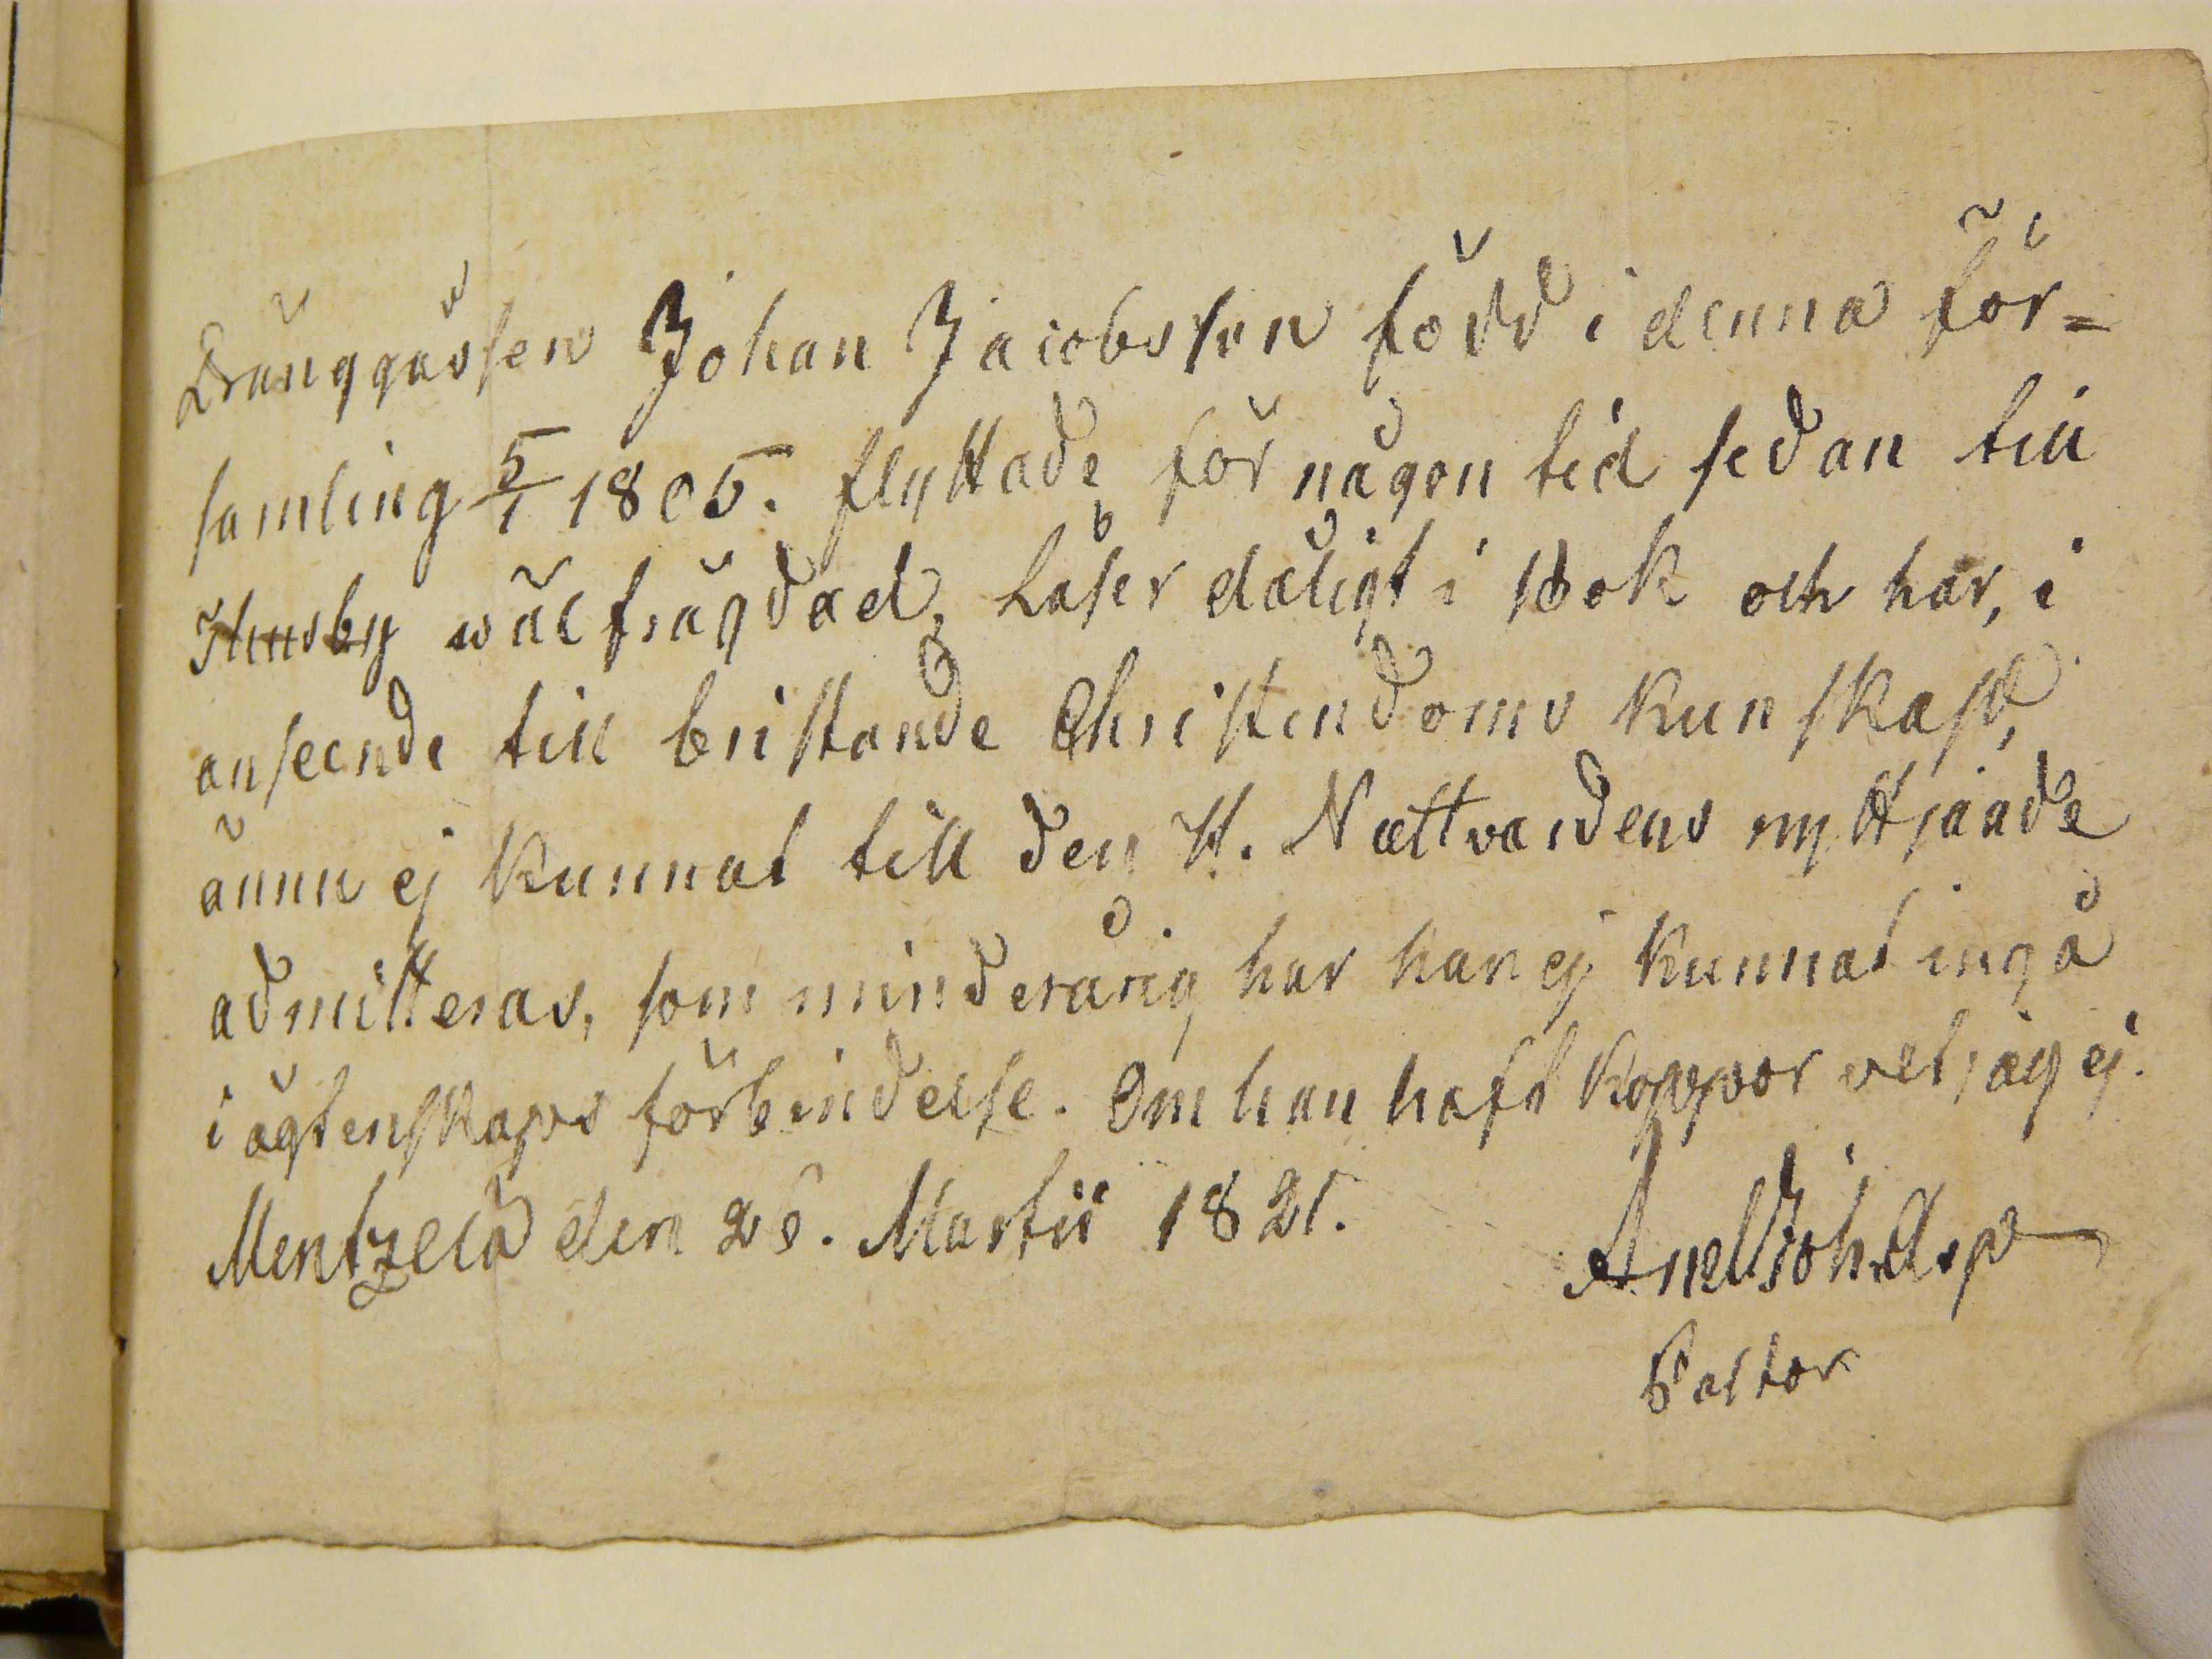 Dränggåssen Johan Jacobsson född i denna för=
samling 5/1 1805. flyttade för någon tid sedan till
Husby wälfrägdad, Läser dåligt i Bok och har, i
anseende till bristande Christendoms kunskap,
ännu ej kunnat till den H. Nattvardens nyttjande
admitteras, som minderårig har han ej kunnat ingå
i ägtenskaps förbindelse. Om han haft koppor vet jag ej.
Mentzelå den 26. Martii 1821.
Pastor